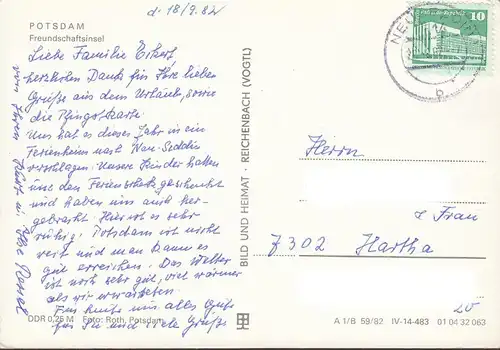 POTSDAM
Freundschaftsinsel
d. 18/9. 82
Liebe Familie
herzlichen Dank für Ihre lieben
Grüße aus dem Urlaub, sowie
die
Uns hat es dieses Jahr in ein
Ferienheim nach Neu-Seddin
verschlagen. Unsere Kinder hatten
uns den Ferienscheck geschenkt
und haben uns auch her-
gebracht. Hier ist es sehr
ruhig, Potsdam ist nicht
weit und man kann es
gut erreichen. Das Wetter
ist noch sehr gut, viel wärmer
als wir erwarteten.
Für heute nun alles Gute
für Sie und viele Grüße
von Ihren Kurt u.
DDR 0,25 M Foto: Roth, Potsdam
BILD UND HEIMAT · REICHENBACH (VOGTL)
NEU
b
10
DDR
Herrn
& Frau
7302 Hartha
20
A 1/B 59/82 IV-14-483 01 04 32 063